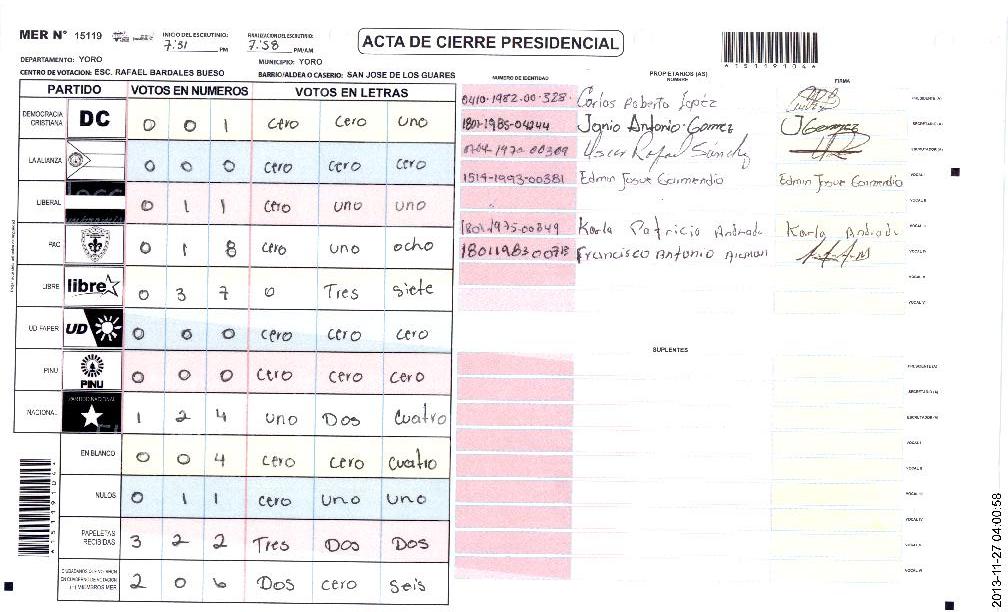 MER N° 15119
INICIO DEL ESCRUTINIO: 7:31 PM
FINALIZACION DEL ESCRUTINIO: 7:58 PM/AM
ACTA DE CIERRE PRESIDENCIAL
A151191044
DEPARTAMENTO: YORO
MUNICIPIO: YORO
CENTRO DE VOTACION: ESC. RAFAEL BARDALES BUESO
BARRIO/ALDEA O CASERIO: SAN JOSE DE LOS GUARES
PARTIDO VOTOS EN NUMEROS VOTOS EN LETRAS
DEMOCRACIA CRISTIANA DC 0 0 1 cero cero uno
LA ALIANZA 0 0 0 cero cero cero
LIBERAL 0 1 1 cero uno uno
PAC 0 1 8 cero uno ocho
LIBRE libre 0 3 7 0 Tres siete
UD FAPER UD 0 0 0 cero cero cero
PINU PINU 0 0 0 cero cero cero
NACIONAL PARTIDO NACIONAL 1 2 4 uno Dos cuatro
EN BLANCO 0 0 4 cero cero cuatro
NULOS 0 1 1 cero uno uno
PAPELETAS RECIBIDAS 3 2 2 Tres Dos Dos
EN CUADERNO DE VOTACION MIEMBROS MER 2 0 6 Dos cero seis
NUMERO DE IDENTIDAD PROPIETARIOS (AS) NOMBRE FIRMA
0410-1982-00-328 Carlos Roberto López PRESIDENTE (A)
1801-1985-04244 Janio Antonio Gomez JGomez SECRETARIO (A)
0704-1970-00309 Oscar Rafael Sánchez ESCRUTADOR (A)
1514-1993-00381 Edmin Josue Garmendio Edmin Josue Garmendio VOCAL I
VOCAL II
1801-1975-00849 Karla Patricia Andrade Karla Andrade VOCAL III
1801198300713 Francisco Antonio VOCAL IV
VOCAL V
SUPLENTES
PRESIDENTE (A)
SECRETARIO (A)
ESCRUTADOR (A)
VOCAL I
VOCAL II
VOCAL III
VOCAL IV
VOCAL V
2013-11-27 04:00:58